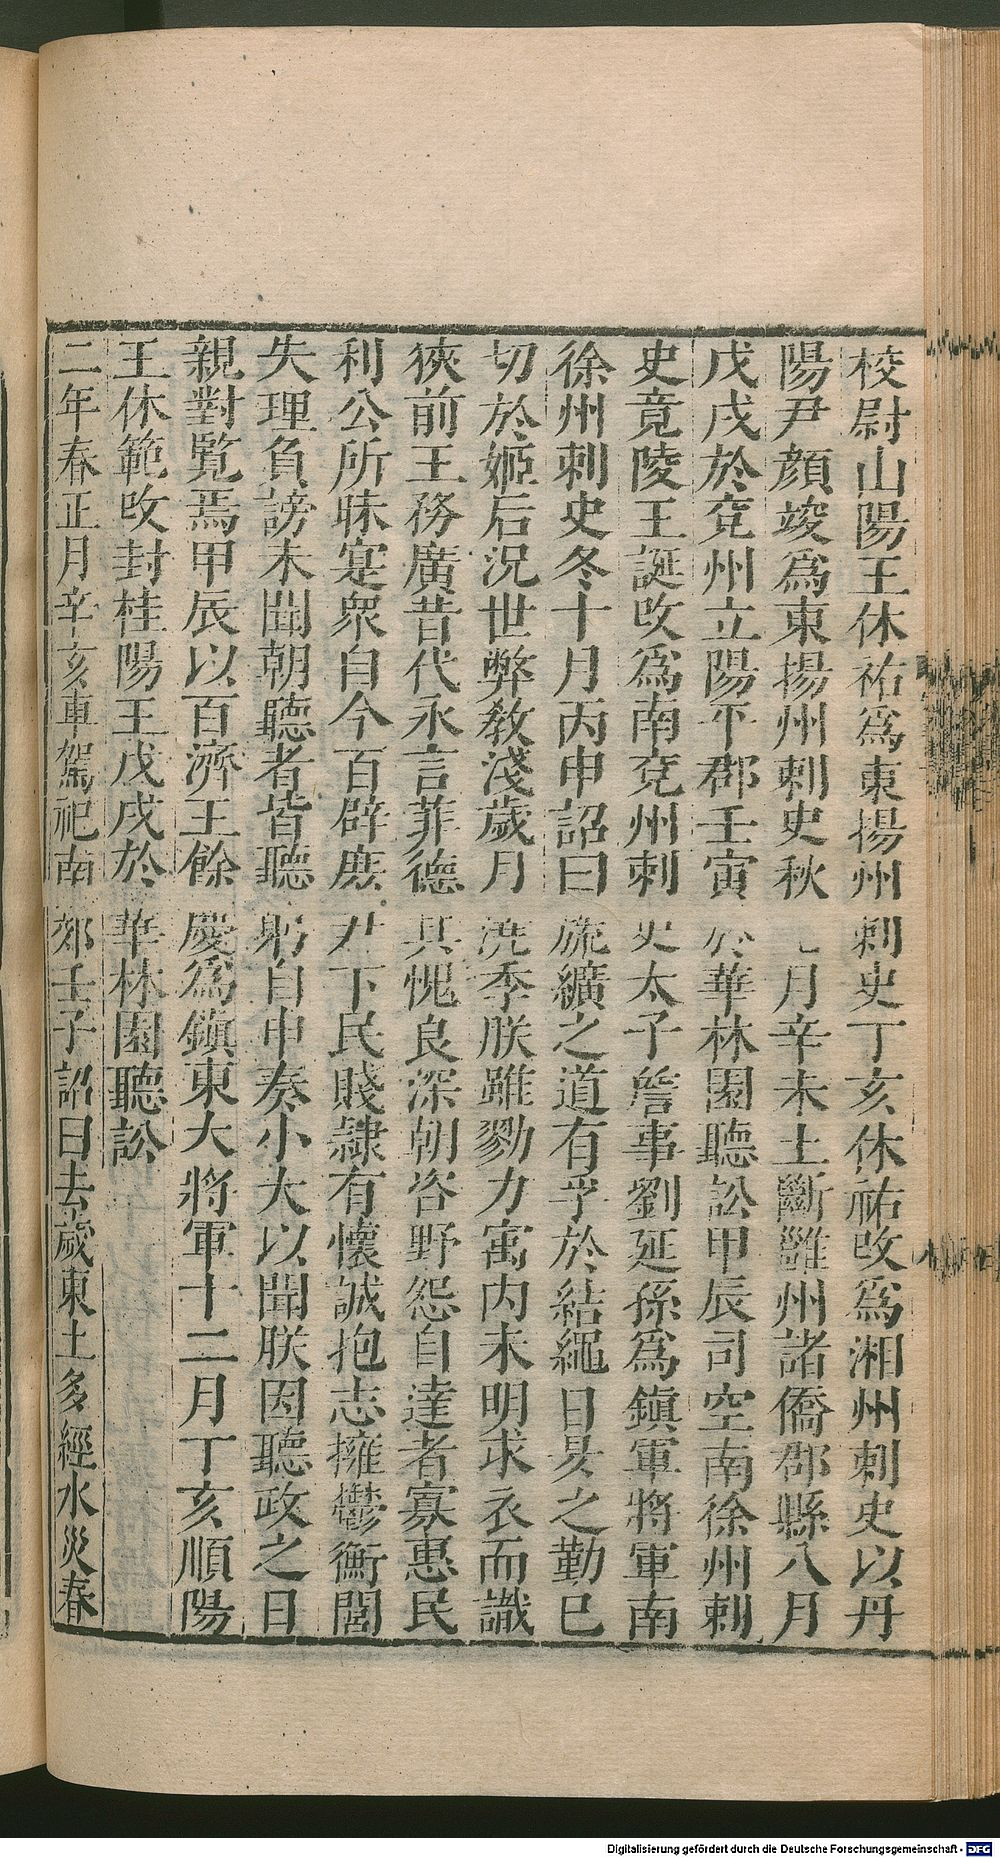 校尉山陽王休祐爲東揚州刺史丁亥休祐攺爲湘州刺史以丹
陽尹顔竣爲東揚州刺史秋七月辛未土斷雝州諸僑郡縣八月
戊戌於兗州立陽平郡壬寅於華林園聽訟甲辰司空南徐州刺
史竟陵王誕攺爲南兗州刺史太子詹事劉延孫爲鎮軍將軍南
徐州刺史冬十月丙申詔曰旒纊之道有孚於結繩日昃之勤已
切於姬后況世弊敎淺歲月澆季朕雖勠力寓内未明求衣而識
狹前王務廣昔代永言菲德其愧良深朝咨野怨自達者寡惠民
利公所昧寔衆自今百辟庶尹下民賤隷有懷誠抱志擁鬱衡閭
失理負謗未聞朝聽者皆聽躬自申奏小大以聞朕因聽政之日
親對覽焉甲辰以百濟王餘慶爲鎮東大將軍十二月丁亥順陽
王休範攺封桂陽王戊戌於華林園聽訟
二年春正月辛亥車駕祀南郊壬子詔曰去歲東土多經水災春
Digitalisierung gefördert durch die Deutsche Forschungsgemeinschaft - DFG